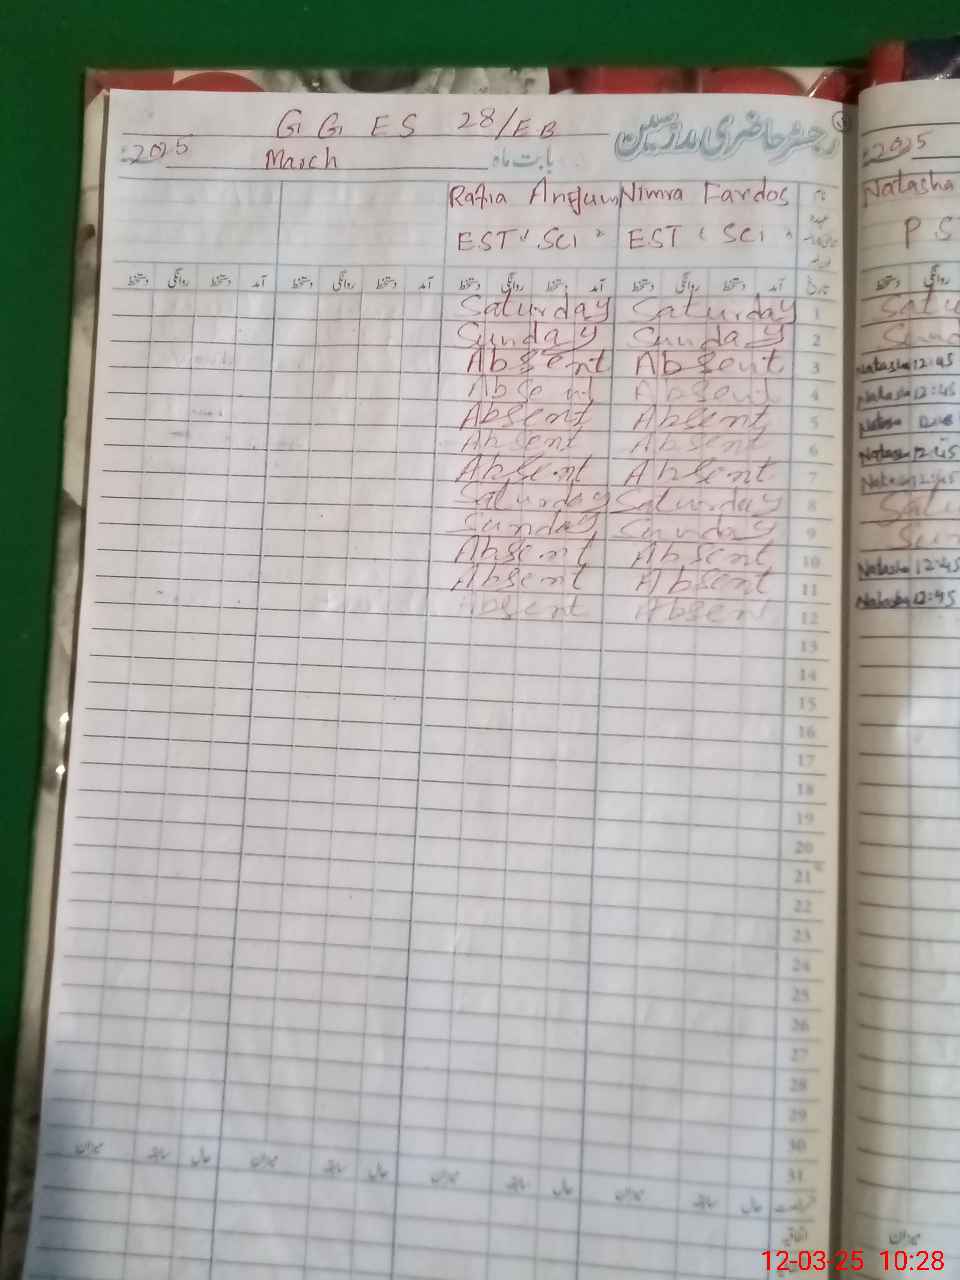 G G E S 28/EB رجسٹر حاضری مدرسین
2025 March بابت ماہ 2025
Rafia Anjum Nimra Fardos نام Natasha
EST "SCI" EST "SCI" عہدہ P S
دستخط روانگی دستخط آمد دستخط روانگی دستخط آمد دستخط روانگی دستخط آمد دستخط روانگی دستخط آمد تاریخ دستخط روانگی
Saturday Saturday 1
Sunday Sunday 2
Absent Absent 3 Natasha 12:45
Absent Absent 4 Natasha 12:45
Absent Absent 5
Absent Absent 6 Natasha 12:45
Absent Absent 7 Natasha 12:45
Saturday Saturday 8
Sunday Sunday 9
Absent Absent 10 Natasha 12:45
Absent Absent 11 Natasha 12:45
Absent Absent 12
13
14
15
16
17
18
19
20
21
22
23
24
25
26
27
28
29
30
میزان سابقہ حال میزان سابقہ حال میزان سابقہ حال میزان سابقہ حال 31
اتفاقیہ میزان
12-03-25 10:28